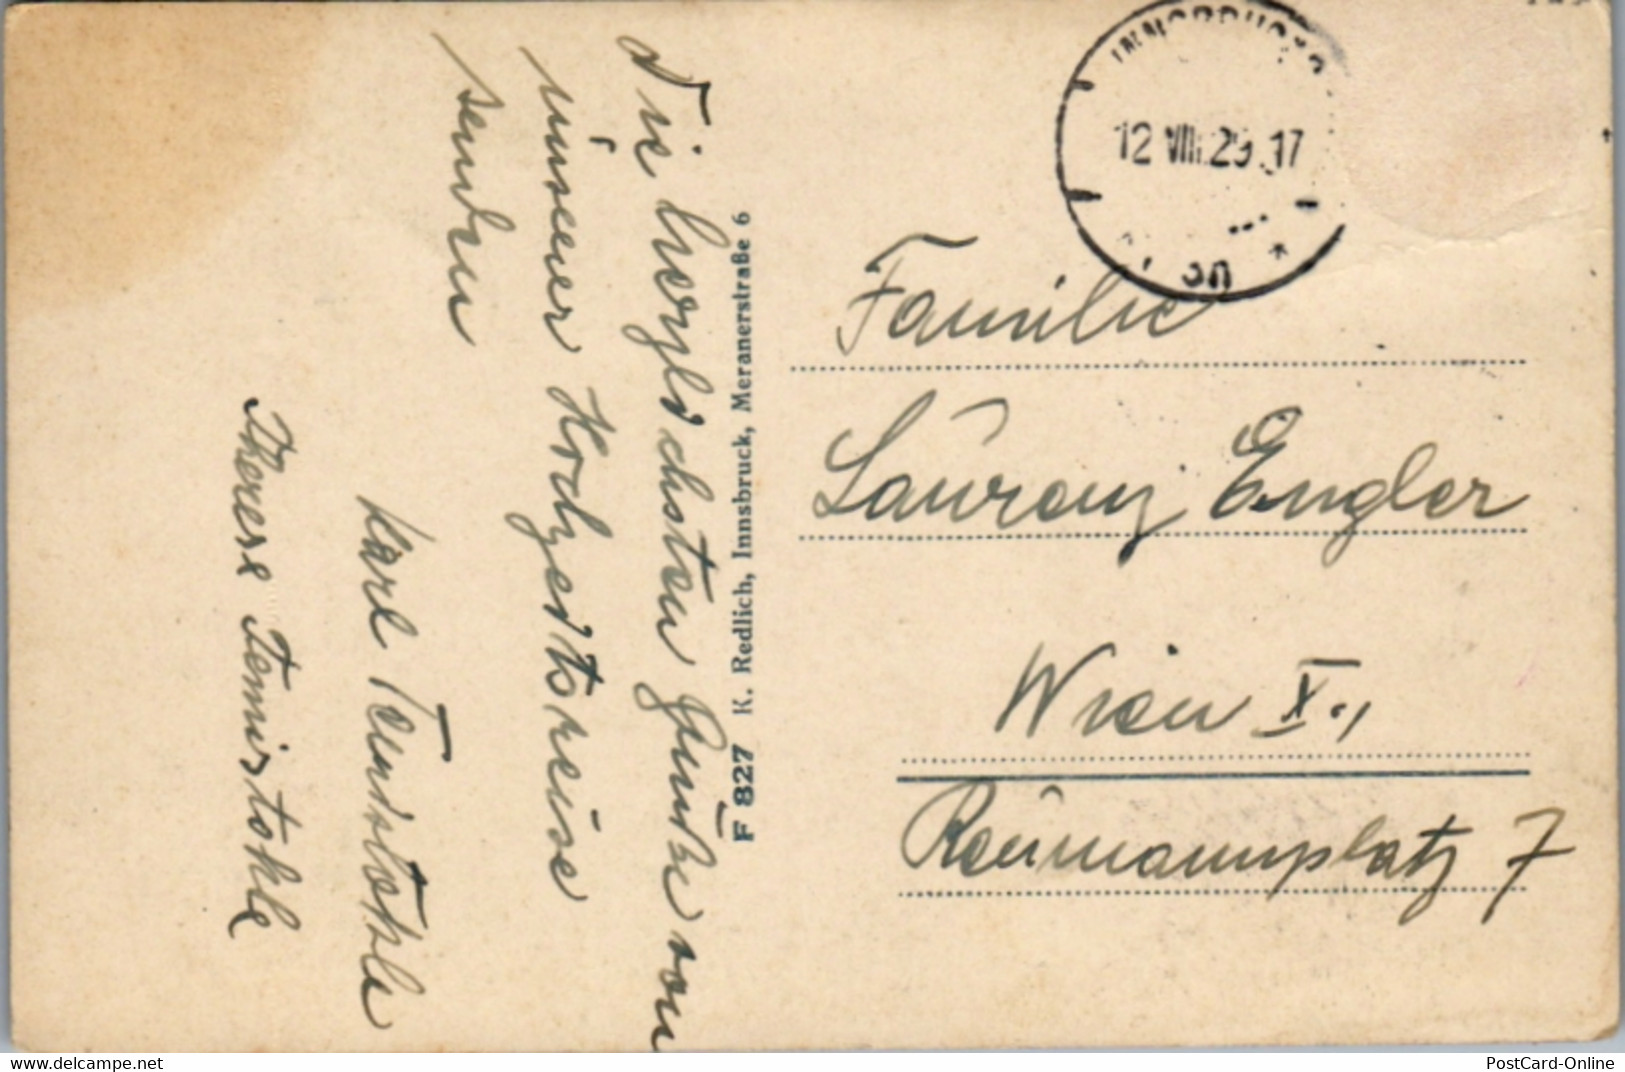 Die herzlichsten Grüße von
unserer Hochzeitsreise
senden
Karl
Therese
F 827 K. Redlich, Innsbruck, Meranerstraße 6
12 VIII.29.17
Familie
Laurenz Engler
Wien X.,
Reumannplatz 7
delcampe.net
PostCard-Online